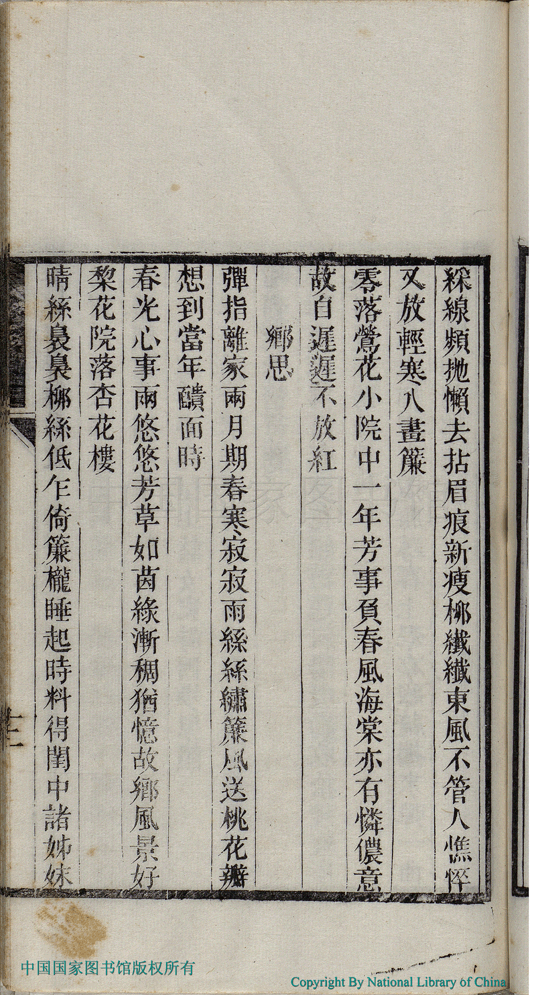 綵線頻拋懶去拈眉痕新瘦柳纖纖東風不管人憔悴
又放輕寒入畫簾
零落鶯花小院中一年芳事負春風海棠亦有憐儂意
故自遲遲不放紅
鄉思
彈指離家兩月期春寒寂寂雨絲絲繡簾風送桃花瓣
想到當年靧面時
春光心事兩悠悠芳草如茵綠漸稠猶憶故鄉風景好
棃花院落杏花樓
晴絲裊裊柳絲低乍倚簾櫳睡起時料得閨中諸姊妹
中国国家图书馆版权所有
Copyright By National Library of China